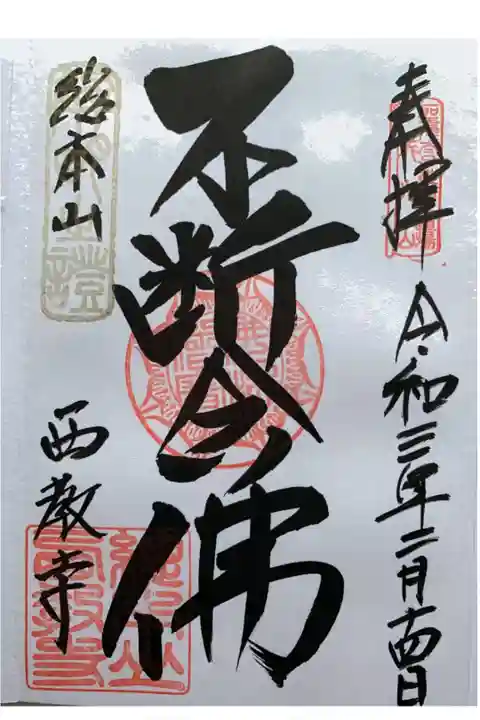 奉拝 令和三年二月十四日
不断念佛
総本山
西教寺